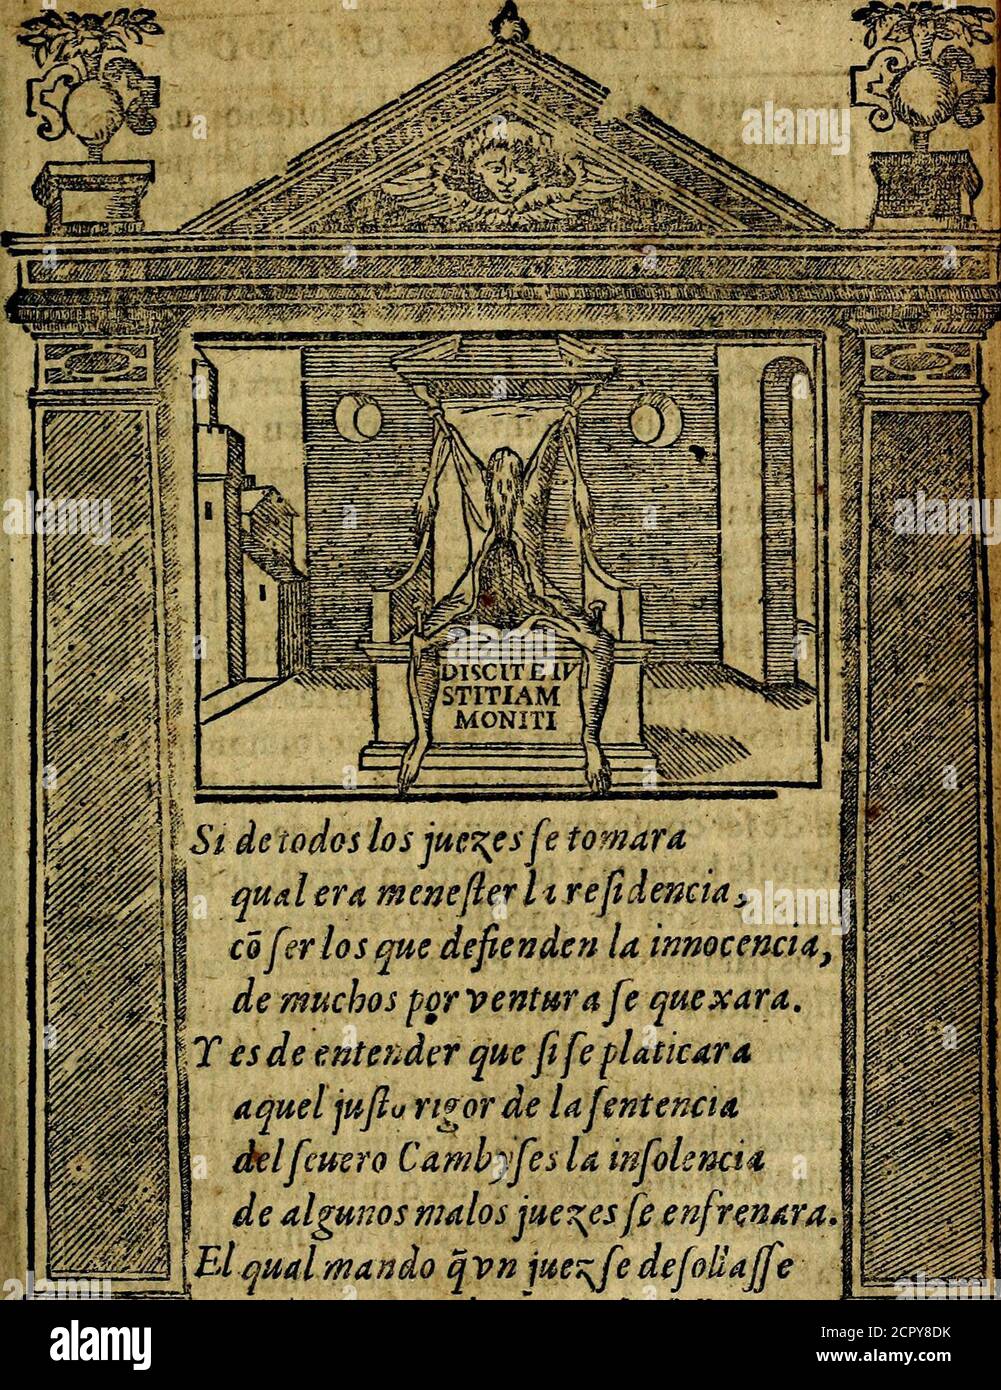 DISCITE IV
STITIAM
MONITI
Si de todos los juezes ſe tomara
qual era meneſter la reſidencia,
cō ſer los que defienden la innocencia,
de muchos por ventura ſe quexara.
Y es de entender que ſi ſe platicara
aquel juſto rigor de la ſentencia
del ſeuero Cambyſes la inſolencia
de algunos malos juezes ſe enfrenara.
El qual mando q̄ vn juez ſe deſollaſſe
alamy stock photo
Image ID: 2CPY8DK
www.alamy.com